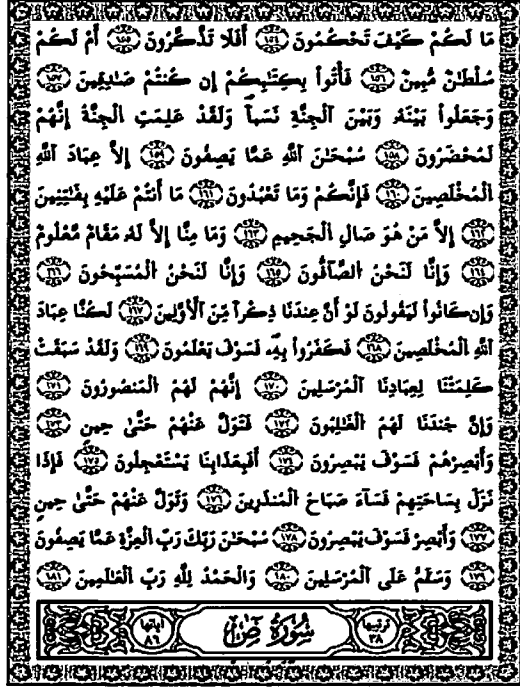 مَا لَكُمْ كَيْفَ تَحْكُمُونَ ١٥٤ أَفَلَا تَذَكَّرُونَ ١٥٥ أَمْ لَكُمْ
سُلْطَـٰنٌ مُّبِينٌ ١٥٦ فَأْتُوا۟ بِكِتَـٰبِكُمْ إِن كُنتُمْ صَـٰدِقِينَ ١٥٧
وَجَعَلُوا۟ بَيْنَهُۥ وَبَيْنَ ٱلْجِنَّةِ نَسَبًا وَلَقَدْ عَلِمَتِ ٱلْجِنَّةُ إِنَّهُمْ
لَمُحْضَرُونَ ١٥٨ سُبْحَـٰنَ ٱللَّهِ عَمَّا يَصِفُونَ ١٥٩ إِلَّا عِبَادَ ٱللَّهِ
ٱلْمُخْلَصِينَ ١٦٠ فَإِنَّكُمْ وَمَا تَعْبُدُونَ ١٦١ مَا أَنتُمْ عَلَيْهِ بِفَـٰتِنِينَ
١٦٢ إِلَّا مَنْ هُوَ صَالِ ٱلْجَحِيمِ ١٦٣ وَمَا مِنَّا إِلَّا لَهُۥ مَقَامٌ مَّعْلُومٌ
١٦٤ وَإِنَّا لَنَحْنُ ٱلصَّآفُّونَ ١٦٥ وَإِنَّا لَنَحْنُ ٱلْمُسَبِّحُونَ ١٦٦
وَإِن كَانُوا۟ لَيَقُولُونَ لَوْ أَنَّ عِندَنَا ذِكْرًا مِّنَ ٱلْأَوَّلِينَ ١٦٧ لَكُنَّا عِبَادَ
ٱللَّهِ ٱلْمُخْلَصِينَ ١٦٨ فَكَفَرُوا۟ بِهِۦ فَسَوْفَ يَعْلَمُونَ ١٦٩ وَلَقَدْ سَبَقَتْ
كَلِمَتُنَا لِعِبَادِنَا ٱلْمُرْسَلِينَ ١٧٠ إِنَّهُمْ لَهُمُ ٱلْمَنصُورُونَ ١٧١
وَإِنَّ جُندَنَا لَهُمُ ٱلْغَـٰلِبُونَ ١٧٢ فَتَوَلَّ عَنْهُمْ حَتَّىٰ حِينٍ ١٧٣
وَأَبْصِرْهُمْ فَسَوْفَ يُبْصِرُونَ ١٧٤ أَفَبِعَذَابِنَا يَسْتَعْجِلُونَ ١٧٥ فَإِذَا
نَزَلَ بِسَاحَتِهِمْ فَسَآءَ صَبَاحُ ٱلْمُنذَرِينَ ١٧٦ وَتَوَلَّ عَنْهُمْ حَتَّىٰ حِينٍ
١٧٧ وَأَبْصِرْ فَسَوْفَ يُبْصِرُونَ ١٧٨ سُبْحَـٰنَ رَبِّكَ رَبِّ ٱلْعِزَّةِ عَمَّا يَصِفُونَ
١٧٩ وَسَلَـٰمٌ عَلَى ٱلْمُرْسَلِينَ ١٨٠ وَٱلْحَمْدُ لِلَّهِ رَبِّ ٱلْعَـٰلَمِينَ ١٨١
ترتيبها ٣٨ سُورَةُ صٓ آياتها ٨٦